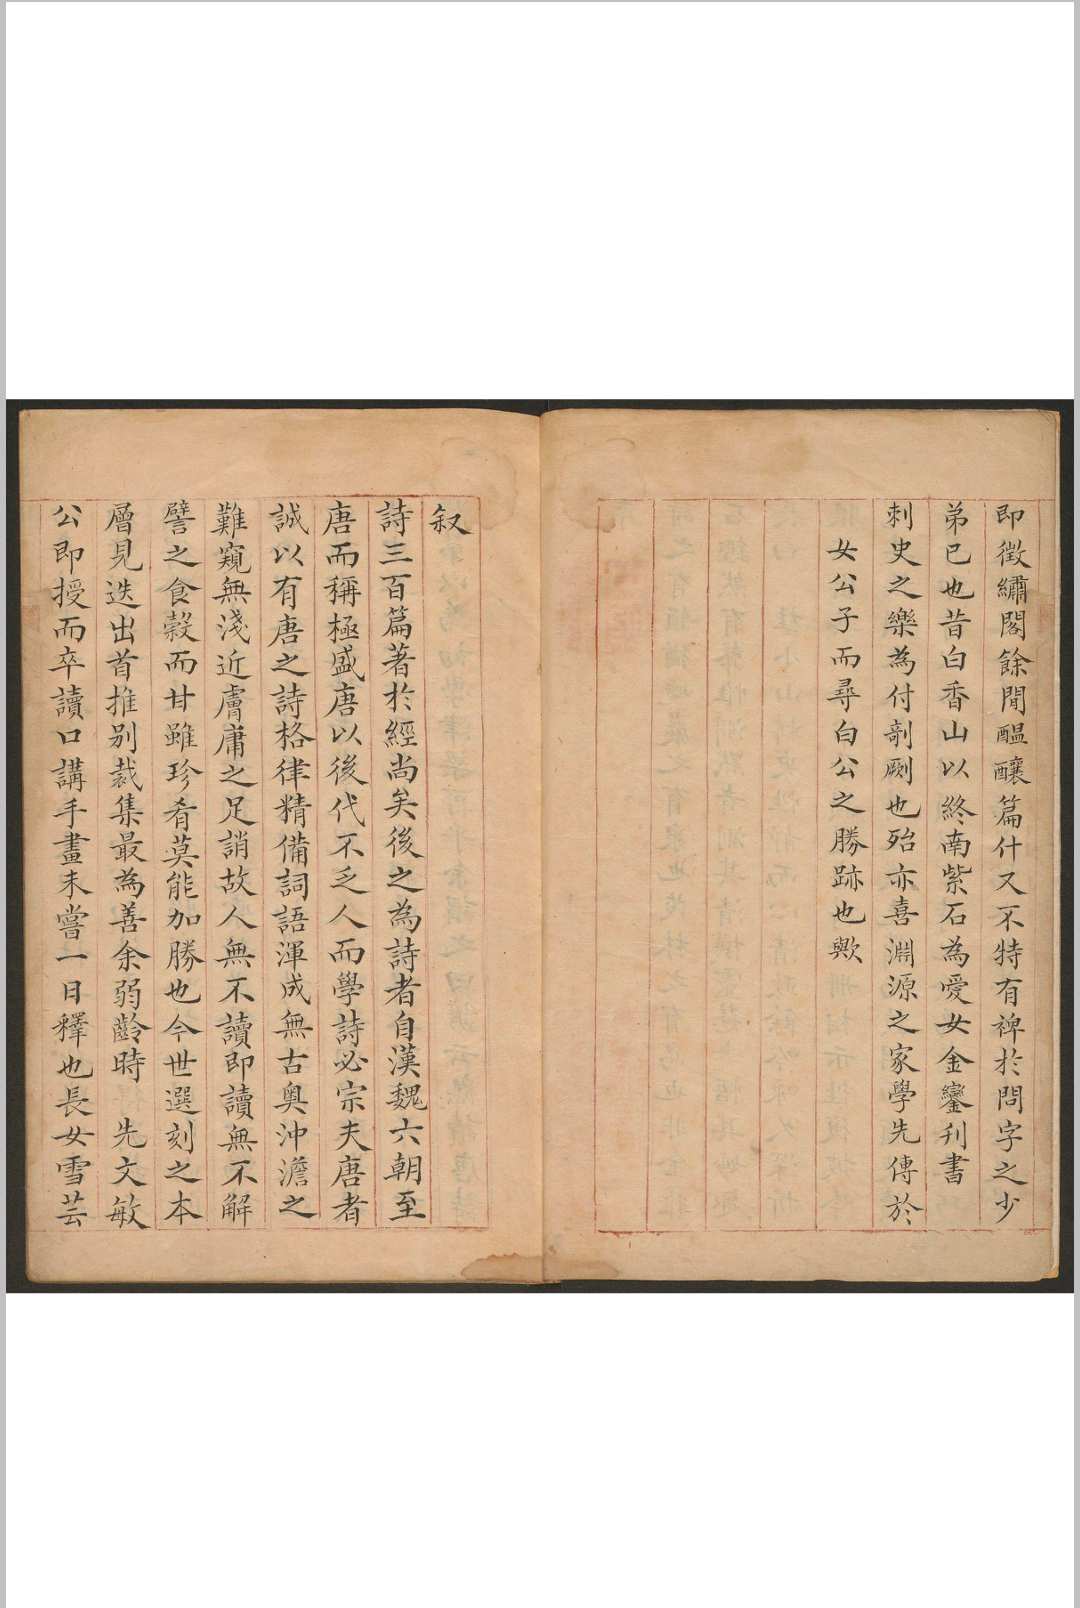 即徵繡閣餘閒醞釀篇什又不特有裨於問字之少
弟已也昔白香山以終南紫石為愛女金鑾刊書
刺史之樂為付剞劂也殆亦喜淵源之家學先傳於
女公子而尋白公之勝跡也歟
叙
詩三百篇著於經尚矣後之為詩者自漢魏六朝至
唐而稱極盛唐以後代不乏人而學詩必宗夫唐者
誠以有唐之詩格律精備詞語渾成無古奧沖澹之
難窺無淺近膚庸之足誚故人無不讀即讀無不解
譬之食穀而甘雖珍肴莫能加勝也今世選刻之本
層見迭出首推别裁集最為善余弱齡時 先文敏
公即授而卒讀口講手畫未嘗一日釋也長女雪芸